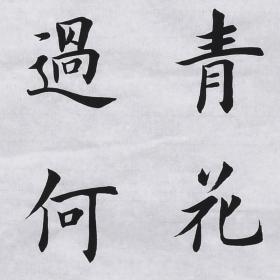 青花
過何